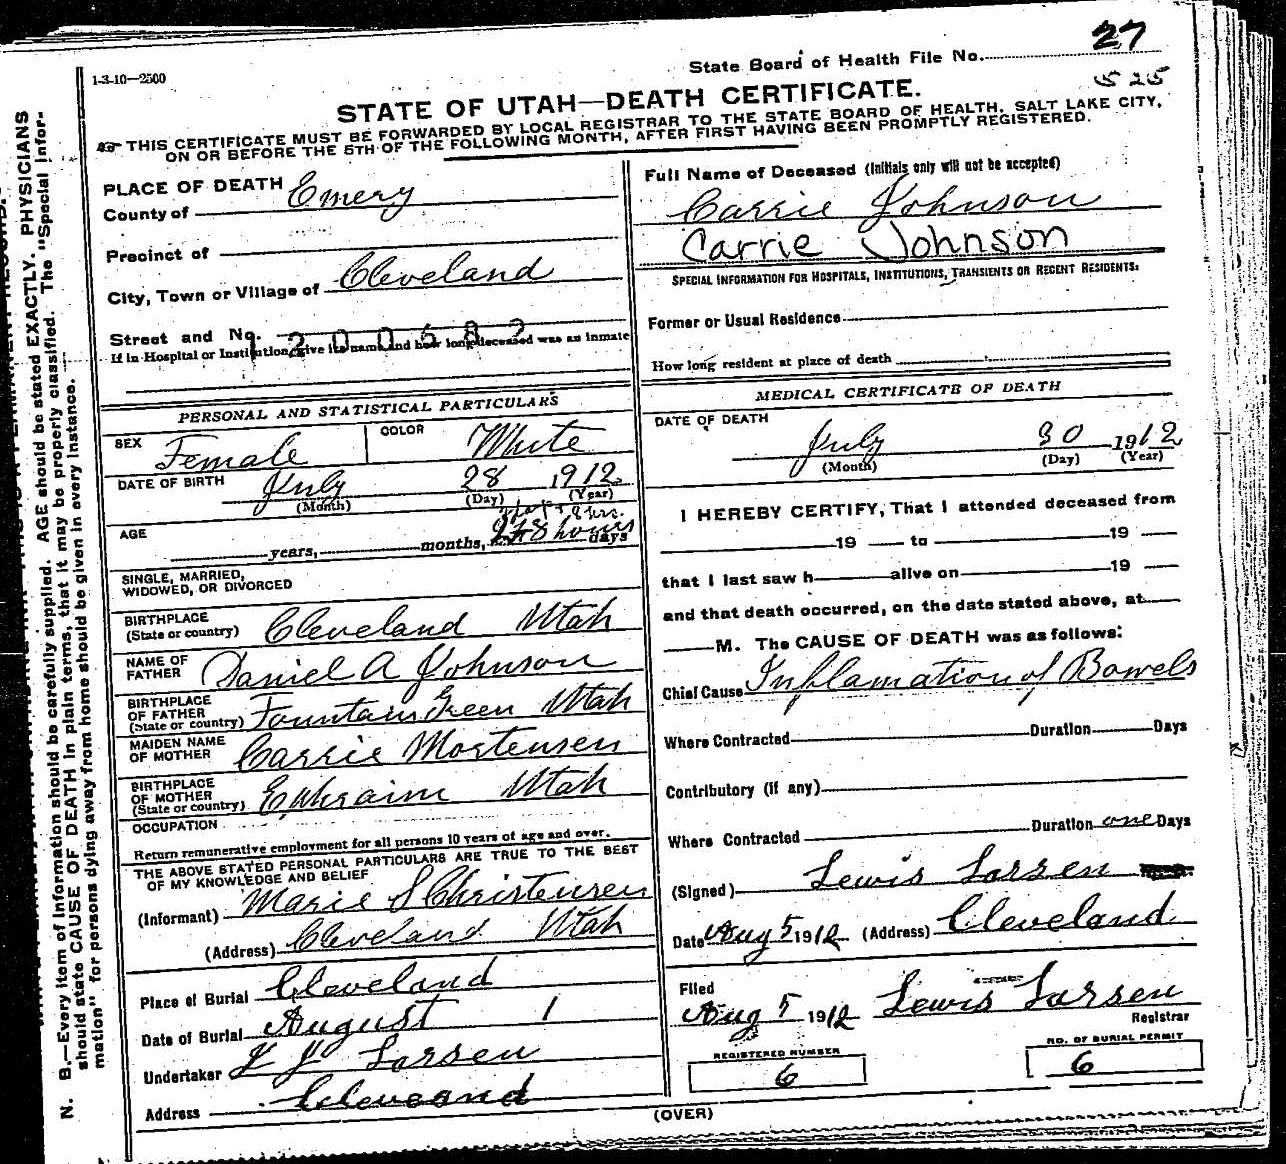 1-3-10—2500
State Board of Health File No. 27
525
STATE OF UTAH—DEATH CERTIFICATE.
THIS CERTIFICATE MUST BE FORWARDED BY LOCAL REGISTRAR TO THE STATE BOARD OF HEALTH, SALT LAKE CITY,
ON OR BEFORE THE 5TH OF THE FOLLOWING MONTH, AFTER FIRST HAVING BEEN PROMPTLY REGISTERED.
N. B.—Every item of information should be carefully supplied. AGE should be stated EXACTLY. PHYSICIANS
should state CAUSE OF DEATH in plain terms, that it may be properly classified. The "Special Infor-
mation" for persons dying away from home should be given in every instance.
PLACE OF DEATH
County of Emery
Precinct of
City, Town or Village of Cleveland
Street and No.
If in Hospital or Institution, give its name and how long deceased was an inmate
PERSONAL AND STATISTICAL PARTICULARS
SEX Female COLOR White
DATE OF BIRTH July 28 1912
(Month) (Day) (Year)
AGE years, months, days
SINGLE, MARRIED,
WIDOWED, OR DIVORCED
BIRTHPLACE
(State or country) Cleveland Utah
NAME OF
FATHER Daniel A Johnson
BIRTHPLACE
OF FATHER
(State or country) Fountain Green Utah
MAIDEN NAME
OF MOTHER Carrie Mortensen
BIRTHPLACE
OF MOTHER
(State or country) Ephraim Utah
OCCUPATION
Return remunerative employment for all persons 10 years of age and over.
THE ABOVE STATED PERSONAL PARTICULARS ARE TRUE TO THE BEST
OF MY KNOWLEDGE AND BELIEF
(Informant) Marie S Christensen
(Address) Cleveland Utah
Place of Burial Cleveland
Date of Burial August 1
Undertaker L J Larsen
Address Cleveand
Full Name of Deceased (Initials only will not be accepted)
Carrie Johnson
Carrie Johnson
SPECIAL INFORMATION FOR HOSPITALS, INSTITUTIONS, TRANSIENTS OR RECENT RESIDENTS:
Former or Usual Residence
How long resident at place of death
MEDICAL CERTIFICATE OF DEATH
DATE OF DEATH
July 30 1912
(Month) (Day) (Year)
I HEREBY CERTIFY, That I attended deceased from
19 to 19
that I last saw h alive on 19
and that death occurred, on the date stated above, at
M. The CAUSE OF DEATH was as follows:
Chief Cause Inflamation of Bowels
Where Contracted Duration Days
Contributory (if any)
Where Contracted Duration one Days
(Signed) Lewis Larsen
Date Aug 5 1912 (Address) Cleveland
Filed
Aug 5 1912 Lewis Larsen
Registrar
REGISTERED NUMBER
6
NO. OF BURIAL PERMIT
6
(OVER)